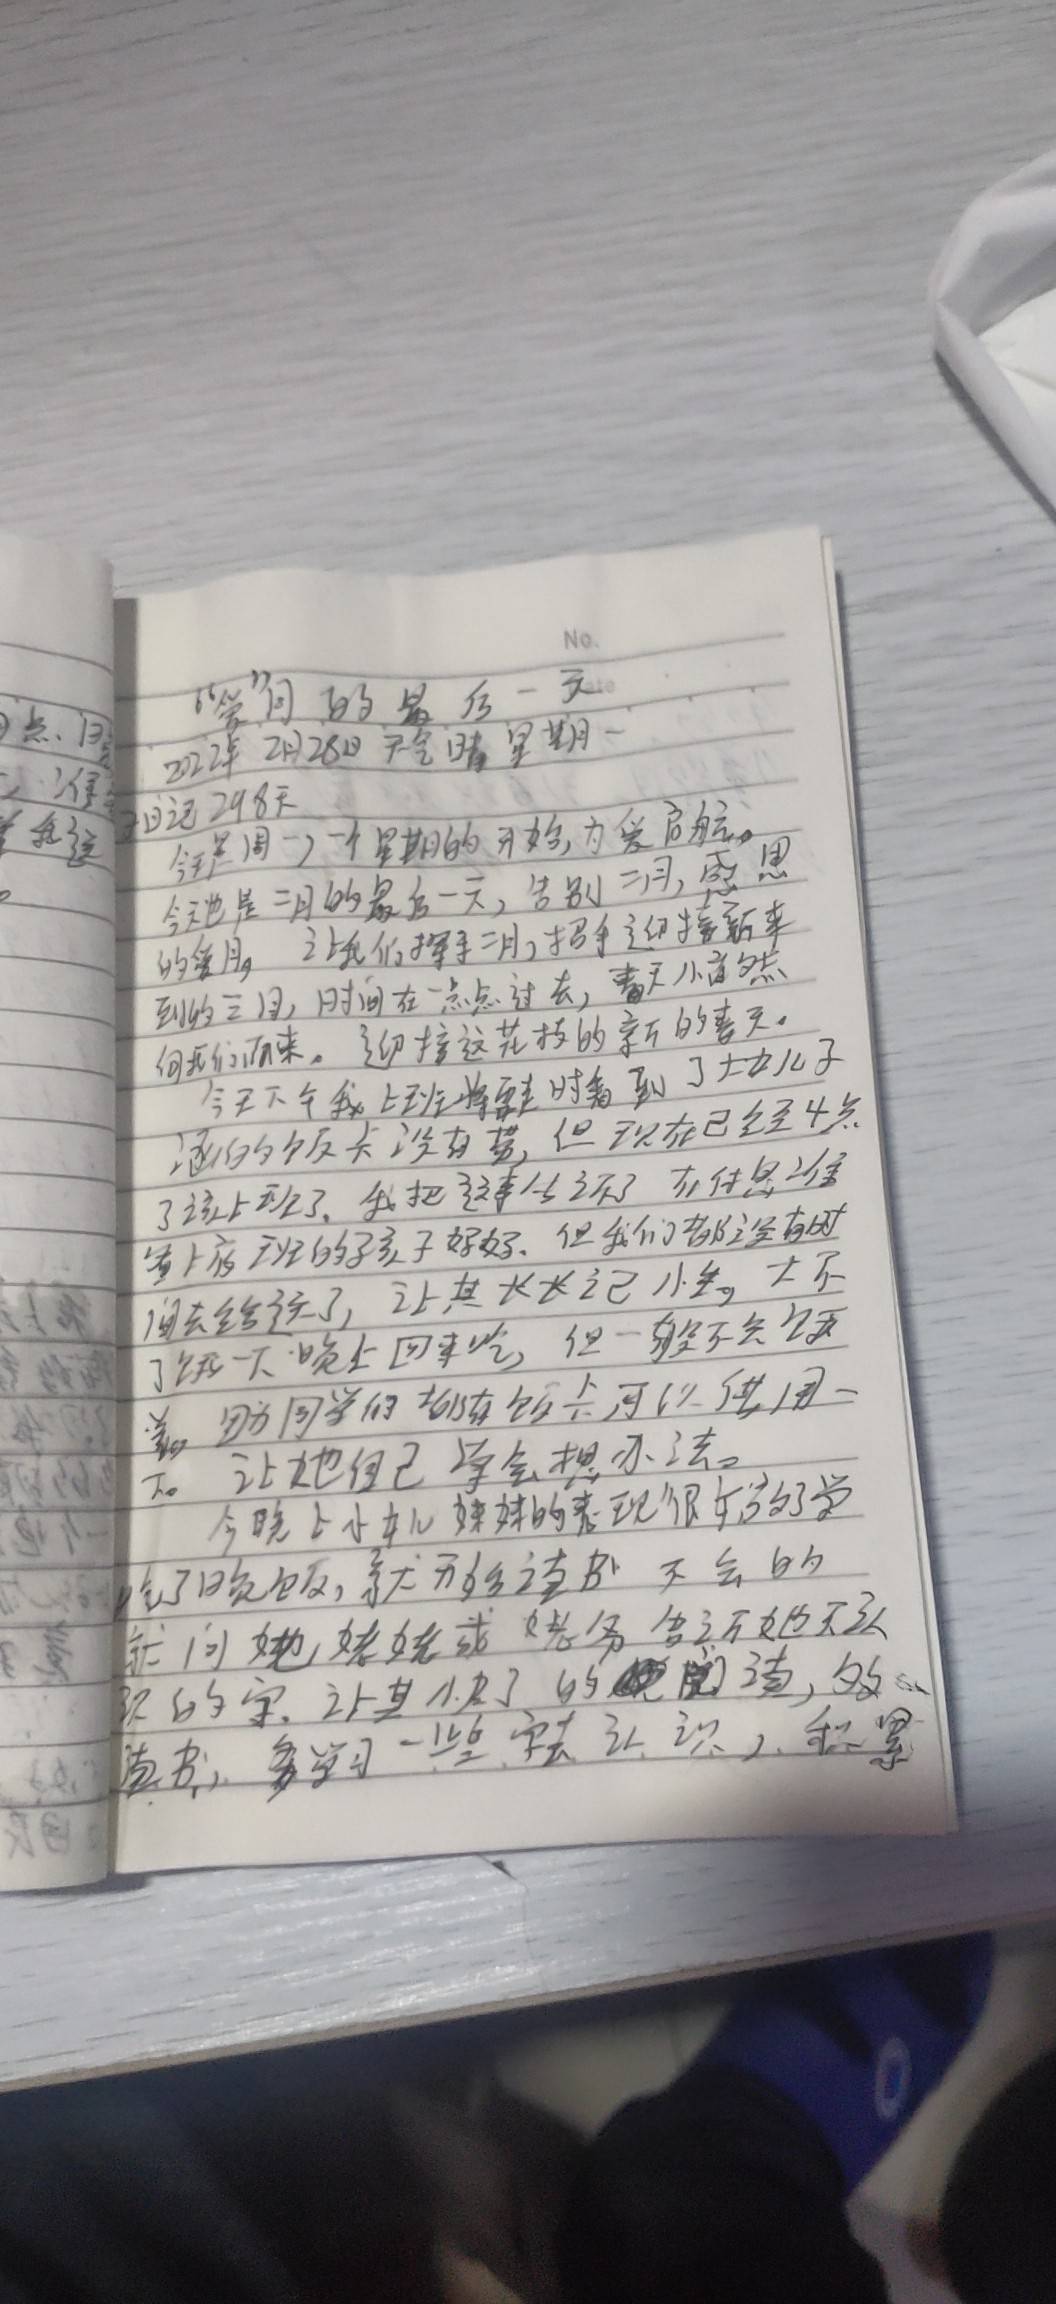 No.
“爱”月的最后一天
2022年2月28日 天气晴 星期一
日记298天
今天是周一,一个星期的开始,为爱启航。
今天也是二月的最后一天,告别二月,感恩
的爱月。让我们挥手二月,招手迎接新来
到的三月,时间在一点点过去,春天悄然
向我们而来。迎接这花枝的新的春天。
今天下午我上班临走时看到了大女儿子
涵的饭卡没有带,但现在已经4点
了该上班了。我把这事告诉了
班的孩子好好。但我们都没有时
间去给送了,让其长长记小生。大不
了饿一下晚上回来吃,但一般不会饿
着。因为同学们都有饭卡可以借用一
下。让她自己学会想办法。
今晚上小女儿妹妹的表现很好放学
吃了晚饭,就开始读书 不会的
就问她姥姥或姥爷告诉她不认
识的字。让其 的阅读,
读书,多学习一些字去认识,积累